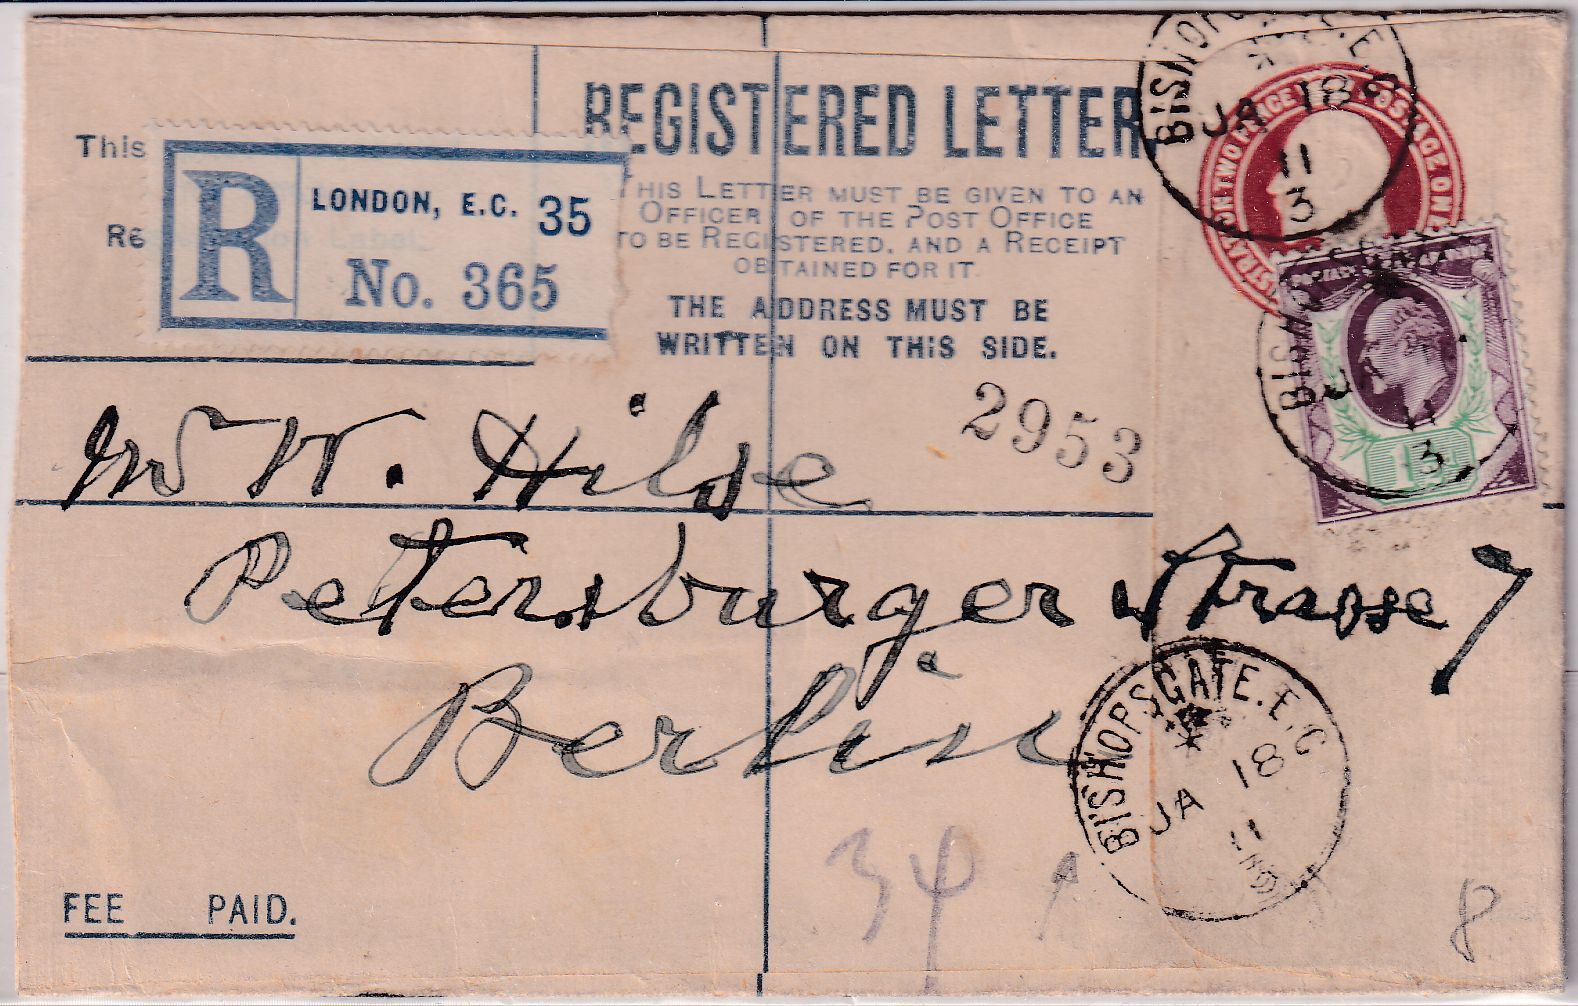 REGISTERED LETTER
This
Re
R
LONDON, E.C. 35
No. 365
THIS LETTER MUST BE GIVEN TO AN
OFFICER OF THE POST OFFICE
TO BE REGISTERED, AND A RECEIPT
OBTAINED FOR IT.
THE ADDRESS MUST BE
WRITTEN ON THIS SIDE.
BISHOPSGATE.E.C
JA 18
11
3
BISHO
JA
11
3
1½
2953
Mr W. Hilse
Petersburger Strasse 7
Berlin
BISHOPSGATE.E.C
JA 18
11
34
8
FEE PAID.